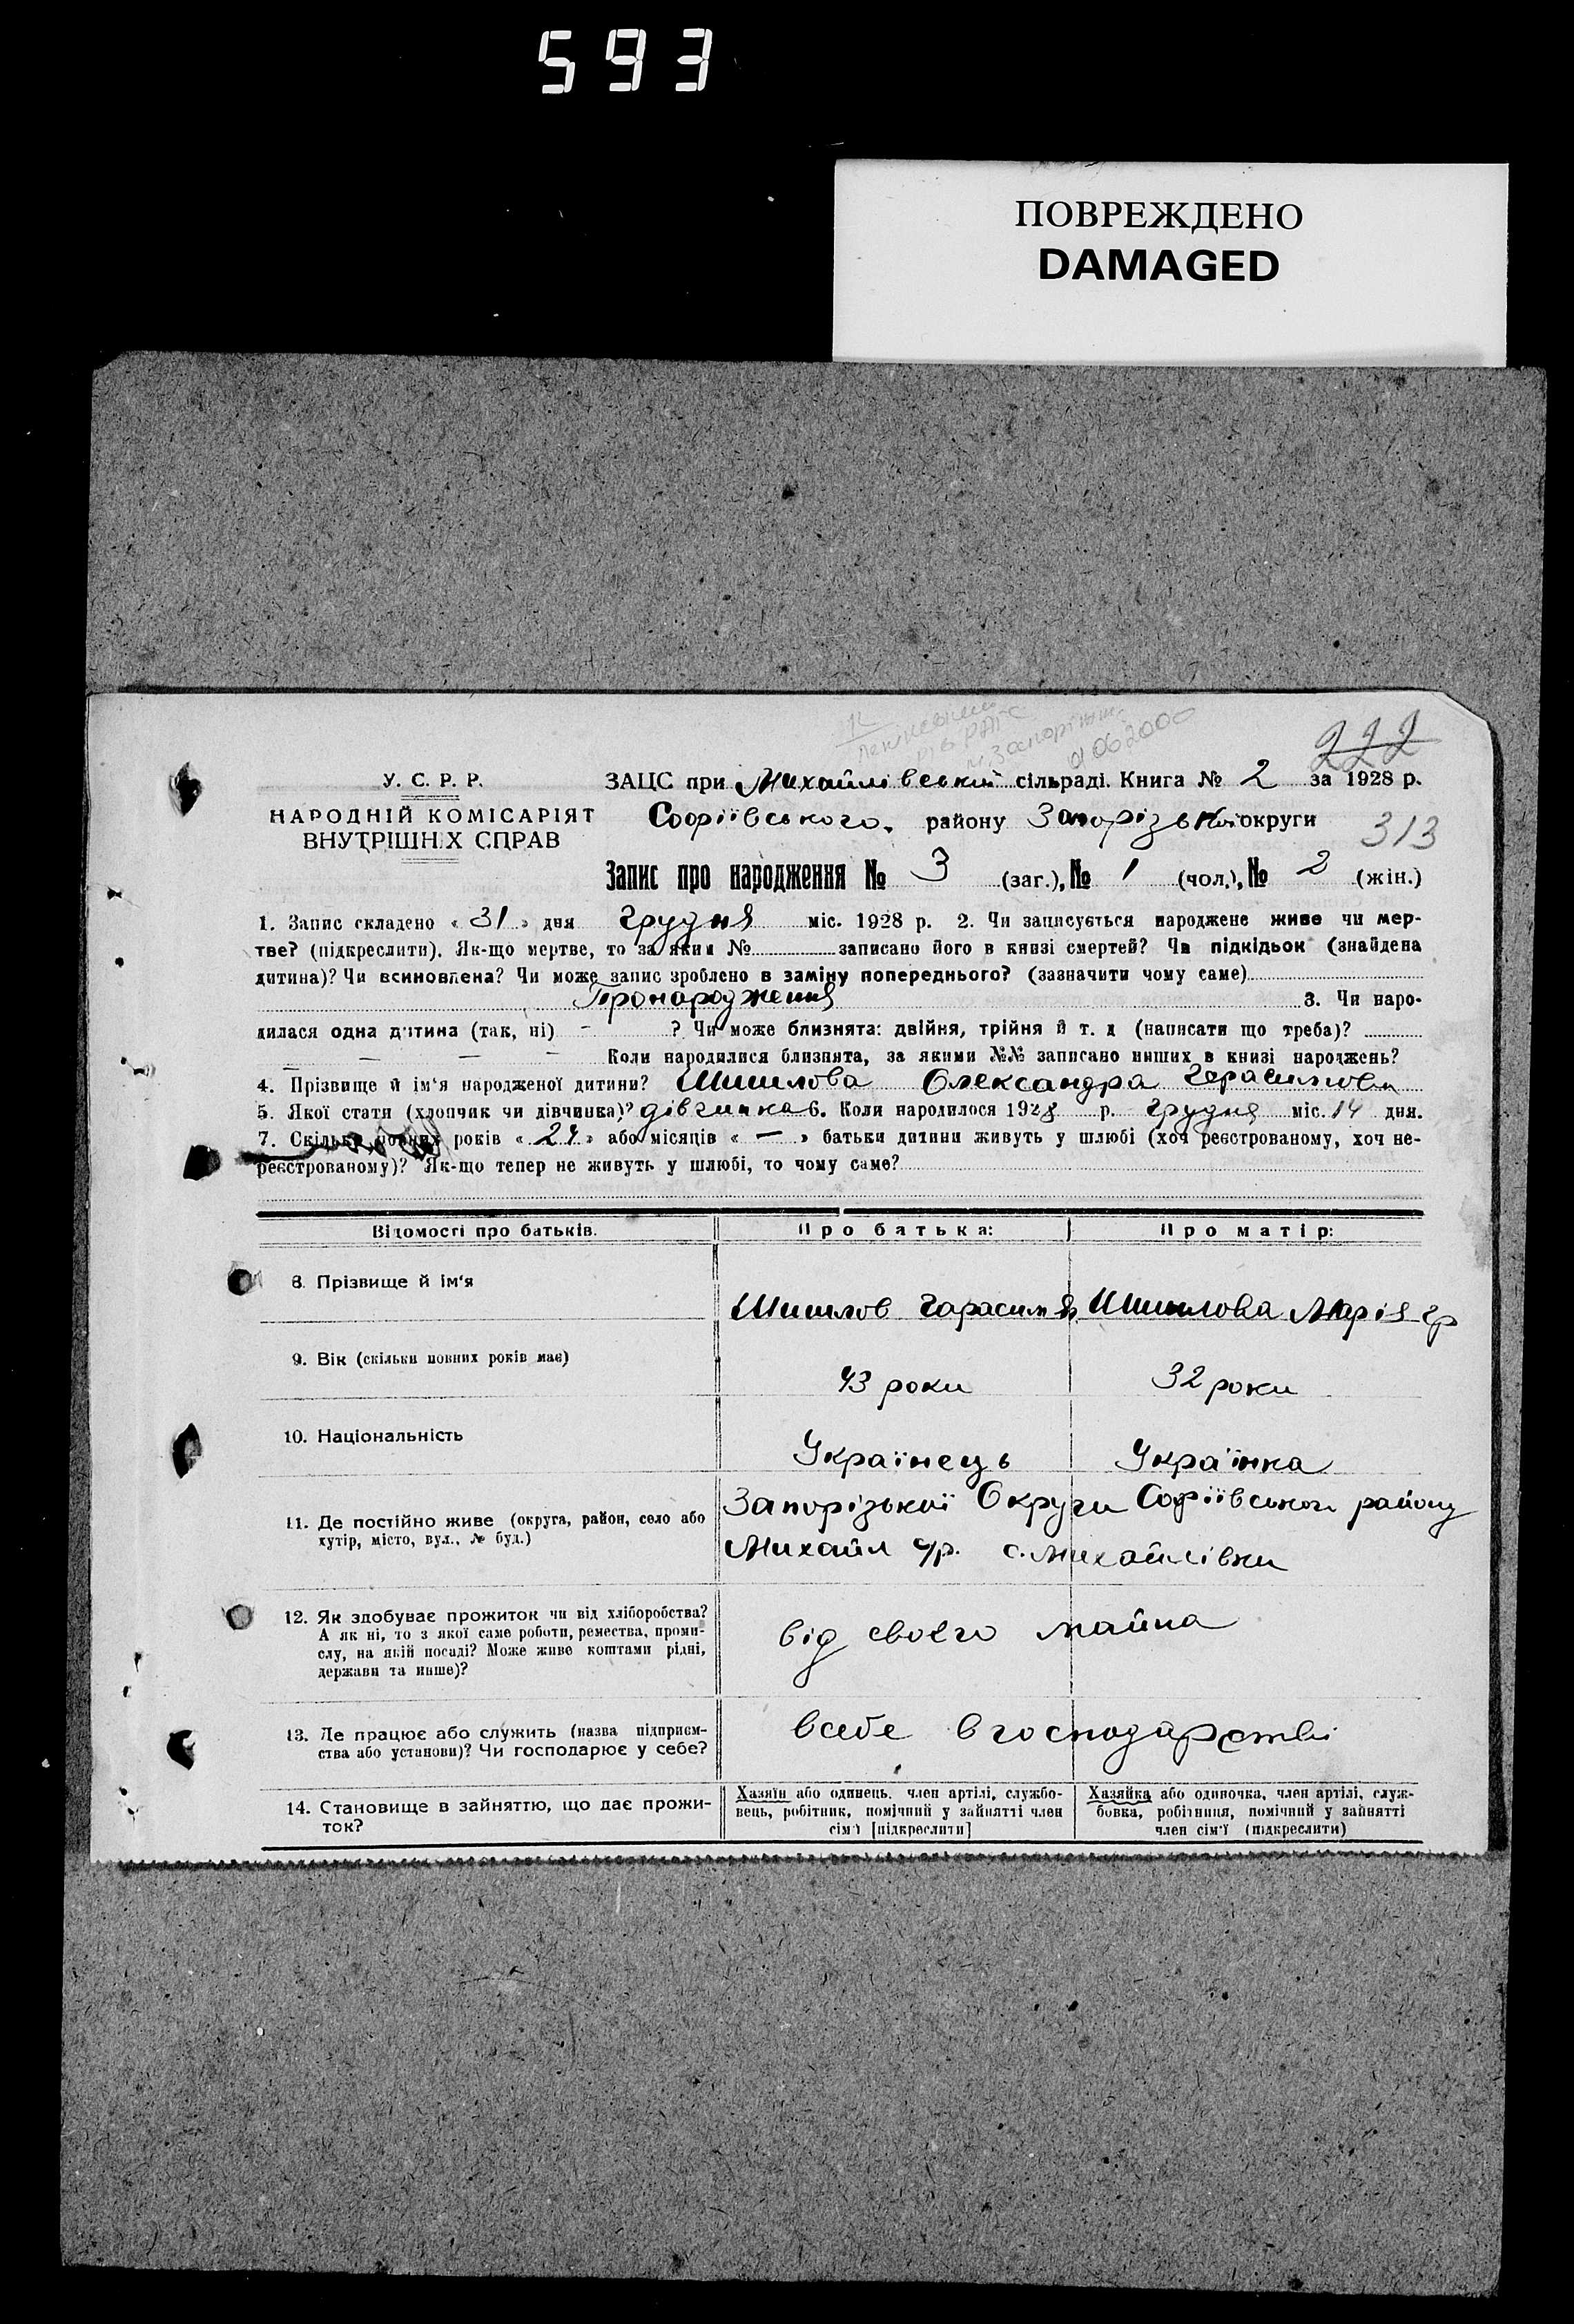 593
ПОВРЕЖДЕНО
DAMAGED
222
У. С. Р. Р.
НАРОДНІЙ КОМІСАРІЯТ
ВНУТРІШНІХ СПРАВ
ЗАЦС при Михайлівській сільраді. Книга № 2 за 1928 р.
Софіївського району Запорізької округи
313
Запис про народження № 3 (заг.), № 1 (чол.), № 2 (жін.)
1. Запис складено « 31 » дня Грудня міс. 1928 р. 2. Чи записується народжене живе чи мер-
тве? (підкреслити). Як-що мертве, то за яким № записано його в книзі смертей? Чи підкідьок (знайдена
дитина)? Чи всиновлена? Чи може запис зроблено в заміну попереднього? (зазначити чому саме)
Про народження 3. Чи наро-
дилася одна дитина (так, ні) - ? Чи може близнята: двійня, трійня й т. д (написати що треба)?
— — — Коли народилися близнята, за якими №№ записано инших в книзі народжень?
4. Прізвище й ім'я народженої дитини? Шишлова Олександра Герасимовн
5. Якої стати (хлопчик чи дівчинка)? дівчинка 6. Коли народилося 1928 р. Грудня міс. 14 дня.
7. Скільки повних років « 24 » або місяців « — » батьки дитини живуть у шлюбі (хоч реєстрованому, хоч не-
реєстрованому)? Як-що тепер не живуть у шлюбі, то чому саме?
Відомості про батьків. Про батька: Про матір:
8. Прізвище й ім'я
Шишлов Гарасим Шишлова Марія гр
9. Вік (скільки повних років має)
43 роки 32 роки
10. Національність
Українець Українка
Запорізької Округи Софіївського району
11. Де постійно живе (округа, район, село або
хутір, місто, вул., № буд.)
Михайл с/р. с. Михайлівки
12. Як здобуває прожиток чи від хліборобства?
А як ні, то з якої саме роботи, ремества, проми-
слу, на якій посаді? Може живе коштами рідні,
держави та инше)?
від своєго майна
13. Де працює або служить (назва підприєм-
ства або установи)? Чи господарює у себе?
в себе в господарстві
14. Становище в зайняттю, що дає прожи-
ток?
Хазяїн або одинець, член артілі, службо-
вець, робітник, помічний у зайнятті член
сім'ї [підкреслити]
Хазяйка або одиночка, член артілі, служ-
бовка, робітниця, помічний у зайнятті
член сім'ї (підкреслити)